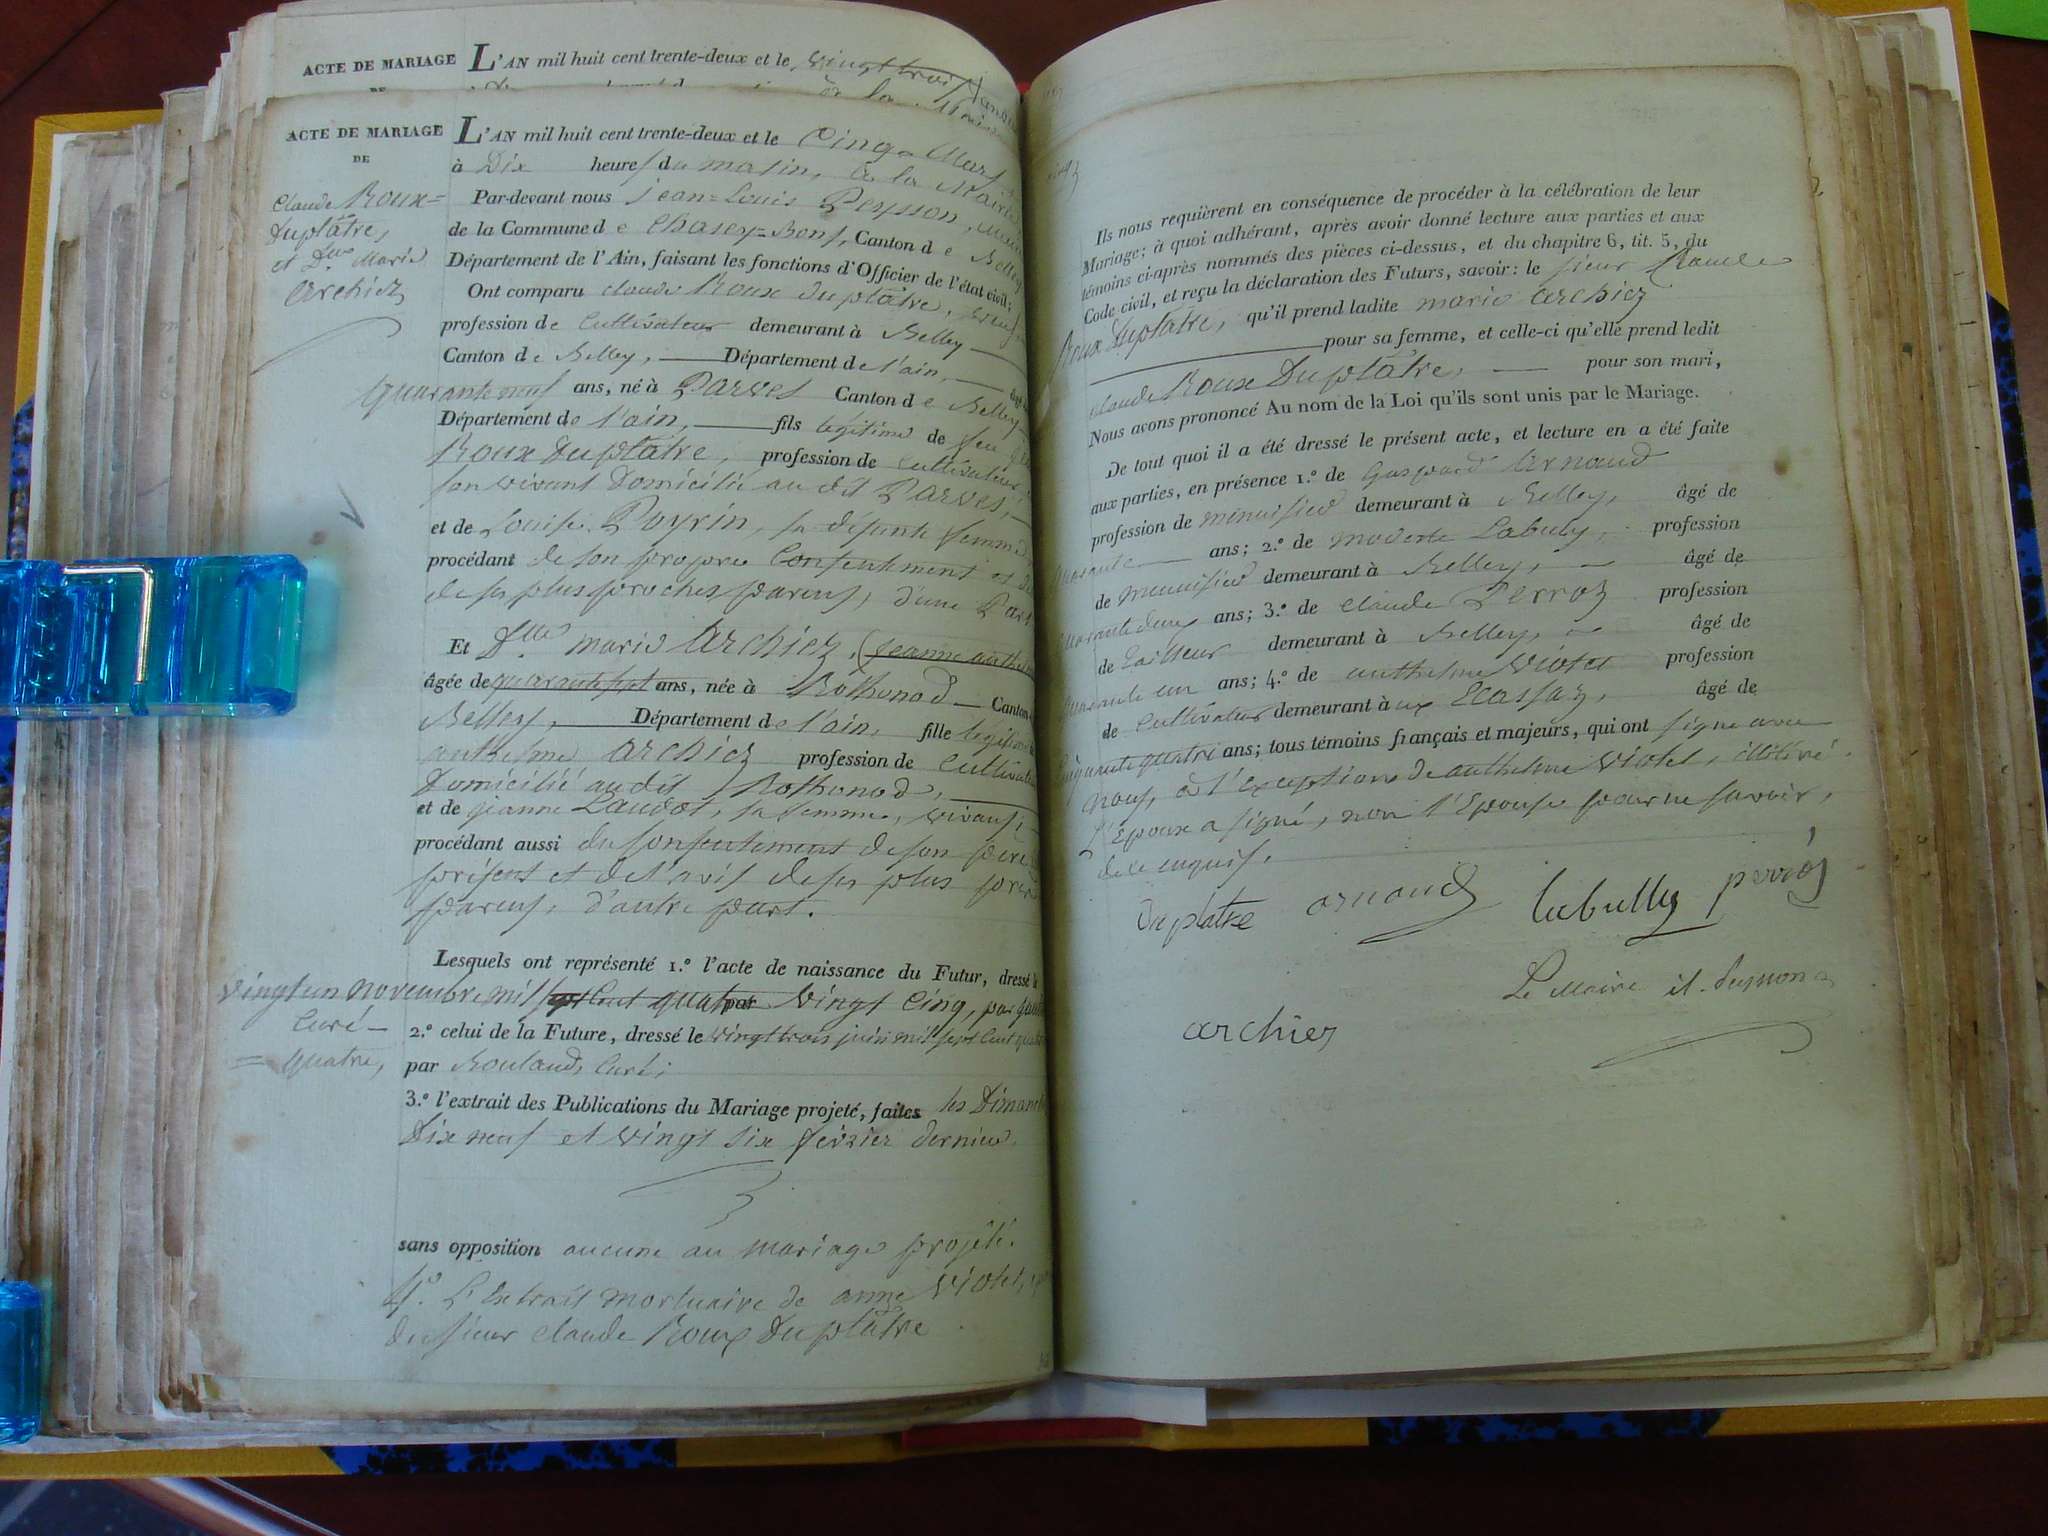 ACTE DE MARIAGE
L'AN mil huit cent trente-deux et le vingt trois
à la
ACTE DE MARIAGE
DE
Claude Roux=
Duplâtre,
et Dlle Marie
Archiez
L'AN mil huit cent trente-deux et le Cinq Mars
à Dix heures du matin, à la Mairie
Par-devant nous jean=Louis Peysson, maire
de la Commune de Chasey=Bons, Canton de Belley
Département de l'Ain, faisant les fonctions d'Officier de l'état civil;
Ont comparu Claude Roux Duplâtre, veuf,
profession de Cultivateur demeurant à Belley
Canton de Belley, Département de l'ain, âgé de
quarante neuf ans, né à Parves Canton de Belley
Département de l'ain, fils légitime de feu
Roux Duplâtre, profession de Cultivateur,
son vivant Domicilié au dit Parves,
et de Louise Poyrin, sa défunte femme
procédant de son propre Consentement et
de ses plus proches parens, d'une Part
Et Dlle marie Archiez, (jeanne anthelme
âgée de quarante sept ans, née à Rothonod Canton
Belley, Département de l'ain, fille légitime
anthelme Archiez profession de Cultivateur
Domicilié audit Rothonod,
et de jeanne Laudot, sa femme, vivans;
procédant aussi du Consentement de son père
présent et de l'avis de ses plus proches
parens, d'autre part.
Lesquels ont représenté 1.º l'acte de naissance du Futur, dressé le
vingt un novembre mil sept Cent quatre vingt Cinq, par
Curé
2.º celui de la Future, dressé le vingt trois juin mil sept Cent quatre
= quatre,
par Rouland, Curé;
3.º l'extrait des Publications du Mariage projeté, faites les Dimanches
Dix neuf et vingt six février dernier
sans opposition aucune au mariage projeté.
4º. L'Extrait mortuaire de anne Violet,
du sieur Claude Roux Duplâtre
Ils nous requièrent en conséquence de procéder à la célébration de leur
Mariage; à quoi adhérant, après avoir donné lecture aux parties et aux
témoins ci-après nommés des pièces ci-dessus, et du chapitre 6, tit. 5, du
Code civil, et reçu la déclaration des Futurs, savoir: le sieur Claude
Roux Duplâtre, qu'il prend ladite marie Archiez
pour sa femme, et celle-ci qu'elle prend ledit
Claude Roux Duplâtre, pour son mari,
Nous avons prononcé Au nom de la Loi qu'ils sont unis par le Mariage.
De tout quoi il a été dressé le présent acte, et lecture en a été faite
aux parties, en présence 1.º de Gaspard Arnaud
profession de menuisier demeurant à Belley, âgé de
quarante ans; 2.º de modeste Labully, profession
de menuisier demeurant à Belley, âgé de
quarante deux ans; 3.º de Claude Perroz profession
de tailleur demeurant à Belley, âgé de
quarante un ans; 4.º de anthelme Violet profession
de Cultivateur demeurant aux Ecassaz, âgé de
Cinquante quatre ans; tous témoins français et majeurs, qui ont signé avec
nous, à l'exception de anthelme Violet, illitéré.
L'Epoux a signé, non l'Epouse pour ne savoir,
de ce enquis.
Duplatre arnaud labully perroz
Le Maire
archiez